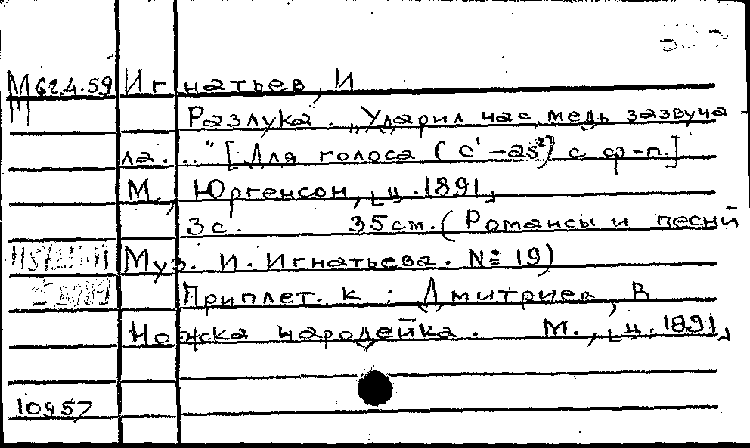 М 624.59 Игнатьев, И
М
Разлука. „Ударил час, медь зазвуча-
ла..." [Для голоса (c¹-as²) с ф-п.]
М., Юргенсон, [ц. 1891]
3 с. 35 см. (Романсы и песни
Муз. И. Игнатьева. № 19)
Приплет. к: Дмитриев, В
Ножка чародейка. М., [ц. 1891]
10957